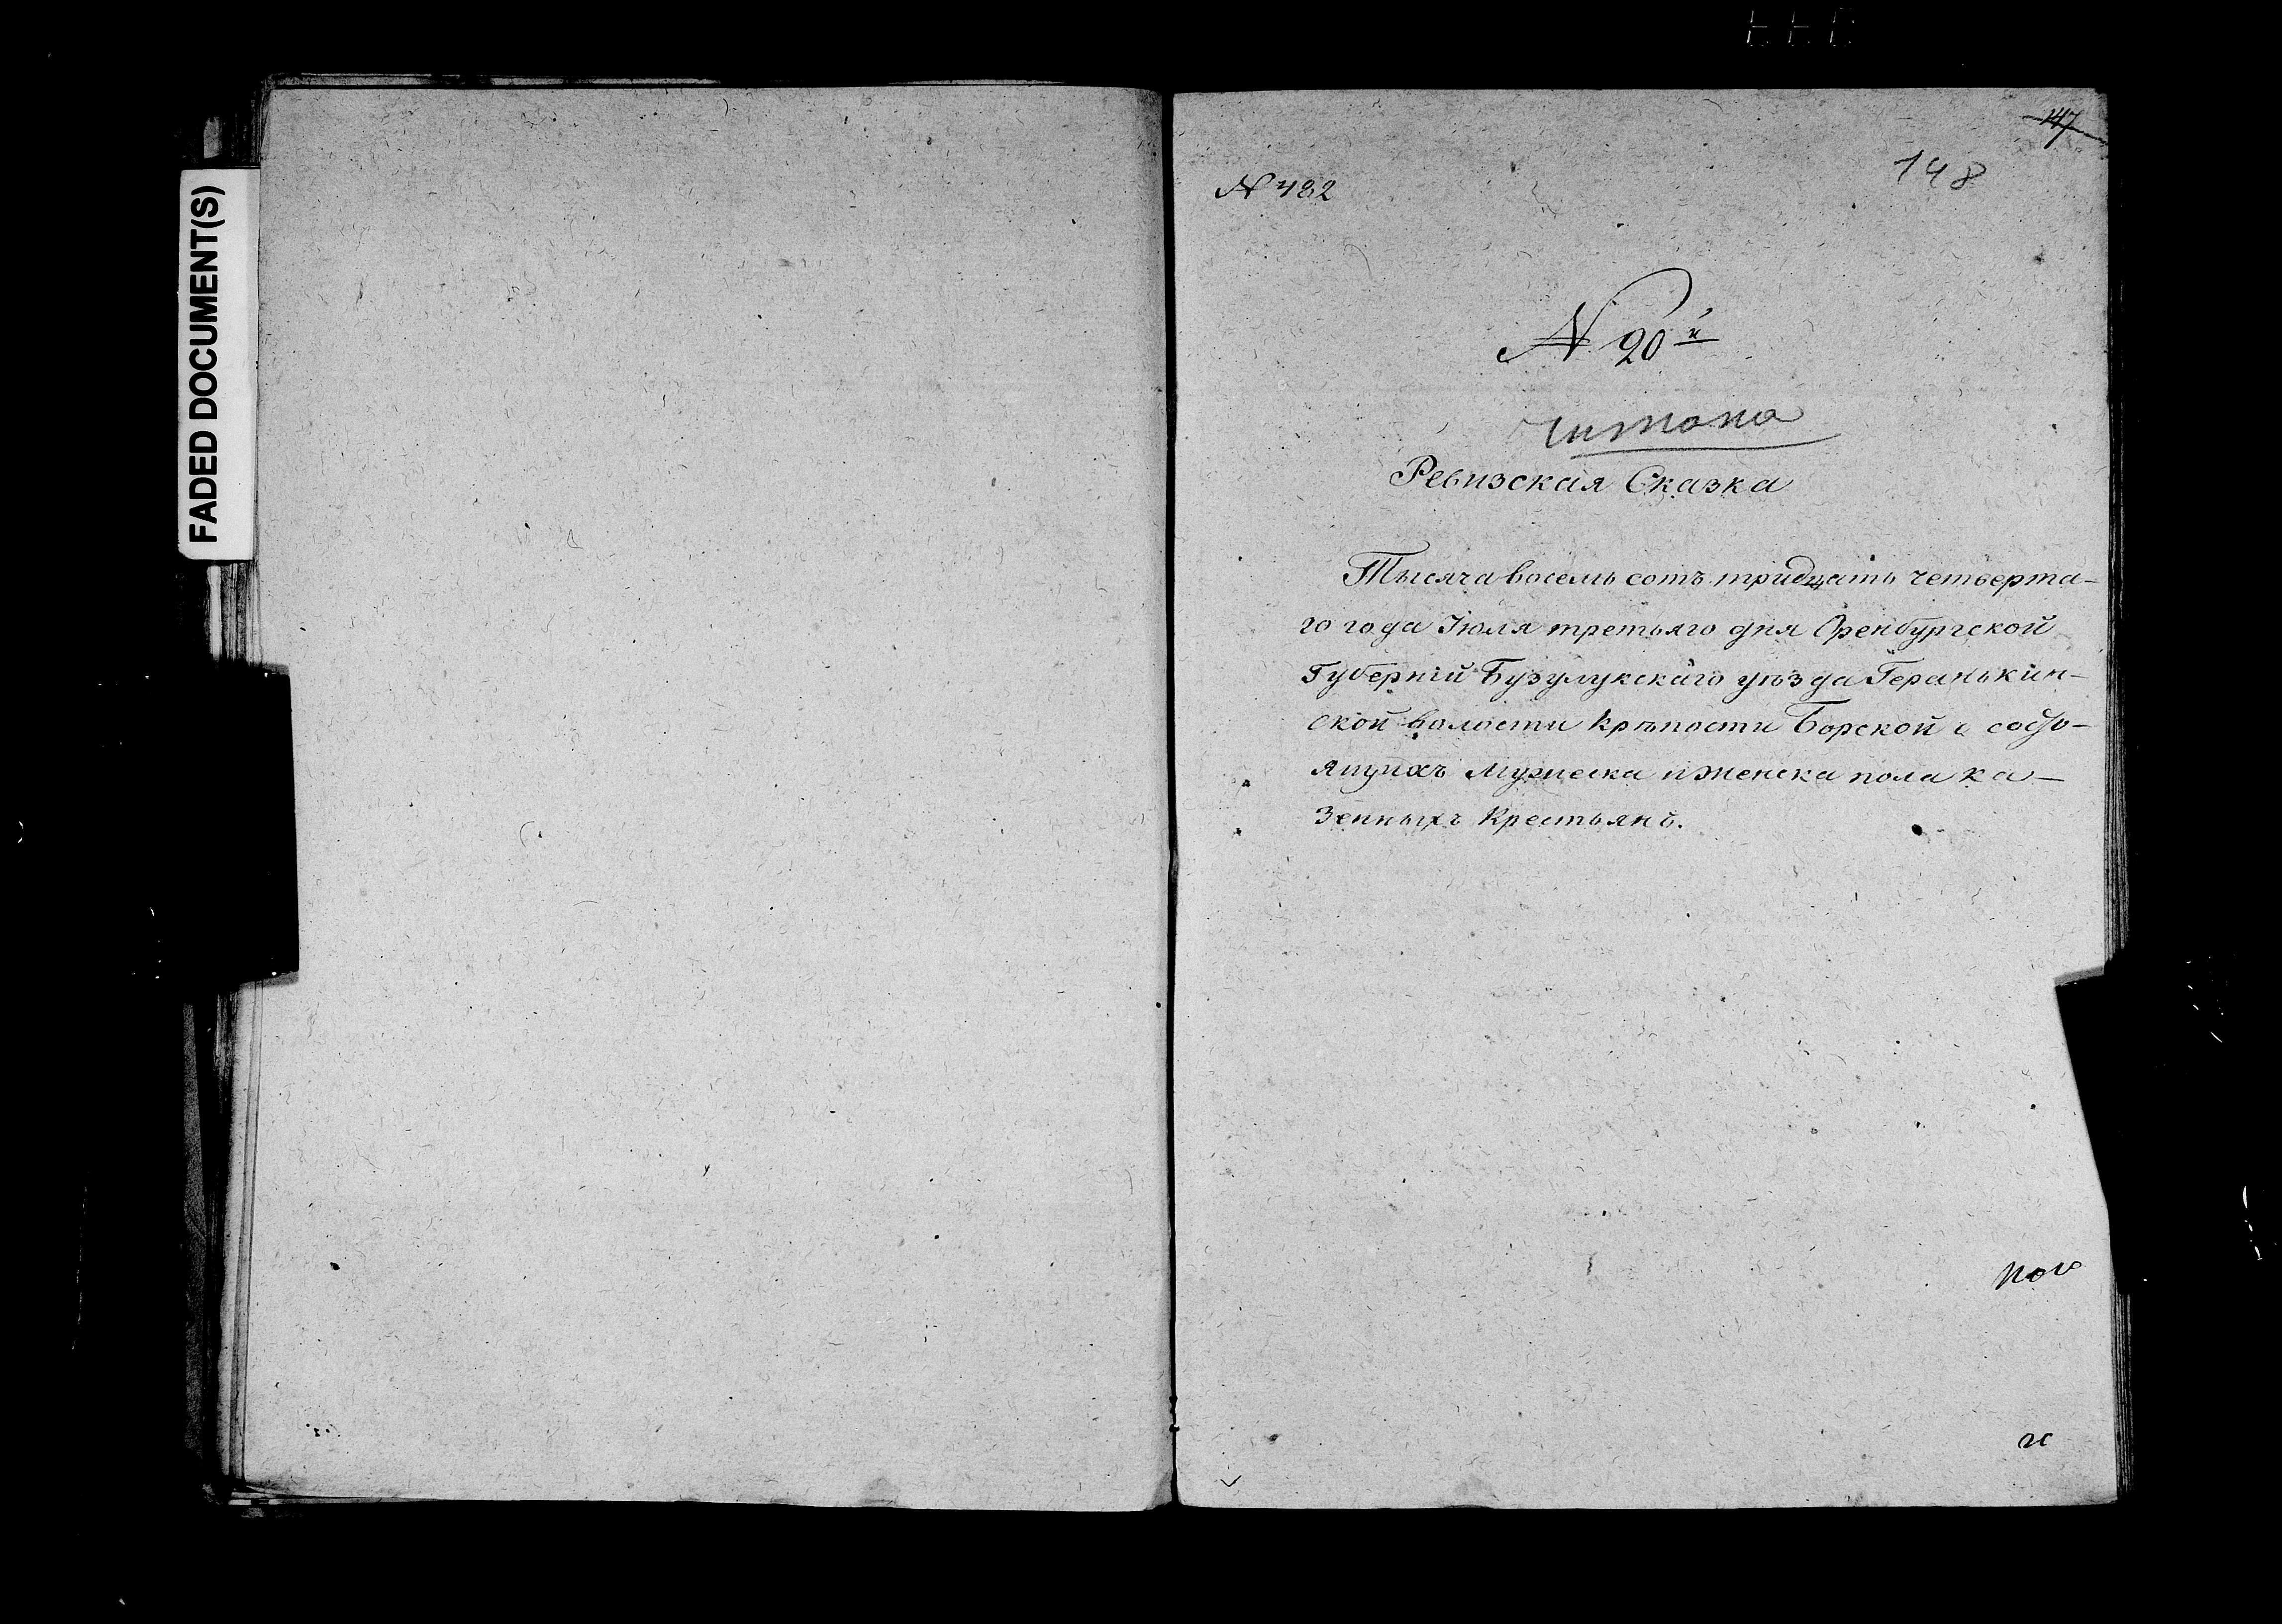 FADED DOCUMENT(S)
147
148
N 482
N. 20й
читано
Ревизская Сказка
Тысяча восемь сотъ тридцать четверта-
го года Июля третьяго дня Оренбургской
Губернiи Бузулукскаго уѣзда Геранькин-
ской волости крѣпости Борской о состо-
ящихъ мужеска и женска пола ка-
зенныхъ крестьянъ.